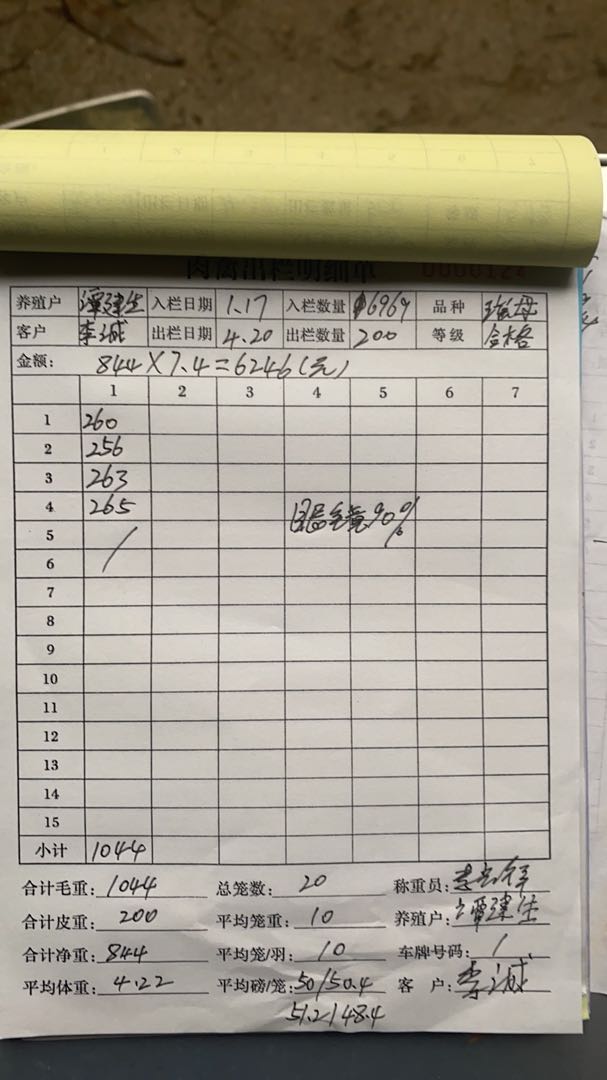 肉禽出栏明细单 0000124
养殖户 谭建生 入栏日期 1.17 入栏数量 6969 品种
客户 李诚 出栏日期 4.20 出栏数量 200 等级 合格
金额: 844×7.4=6246(元)
1 2 3 4 5 6 7
1 260
2 256
3 263
4 265 90%
5 /
6
7
8
9
10
11
12
13
14
15
小计 1044
合计毛重: 1044 总笼数: 20 称重员:
合计皮重: 200 平均笼重: 10 养殖户: 谭建生
合计净重: 844 平均笼/羽: 10 车牌号码: /
平均体重: 4.22 平均磅/笼: 50/50.4 客户: 李诚
51.2/48.4